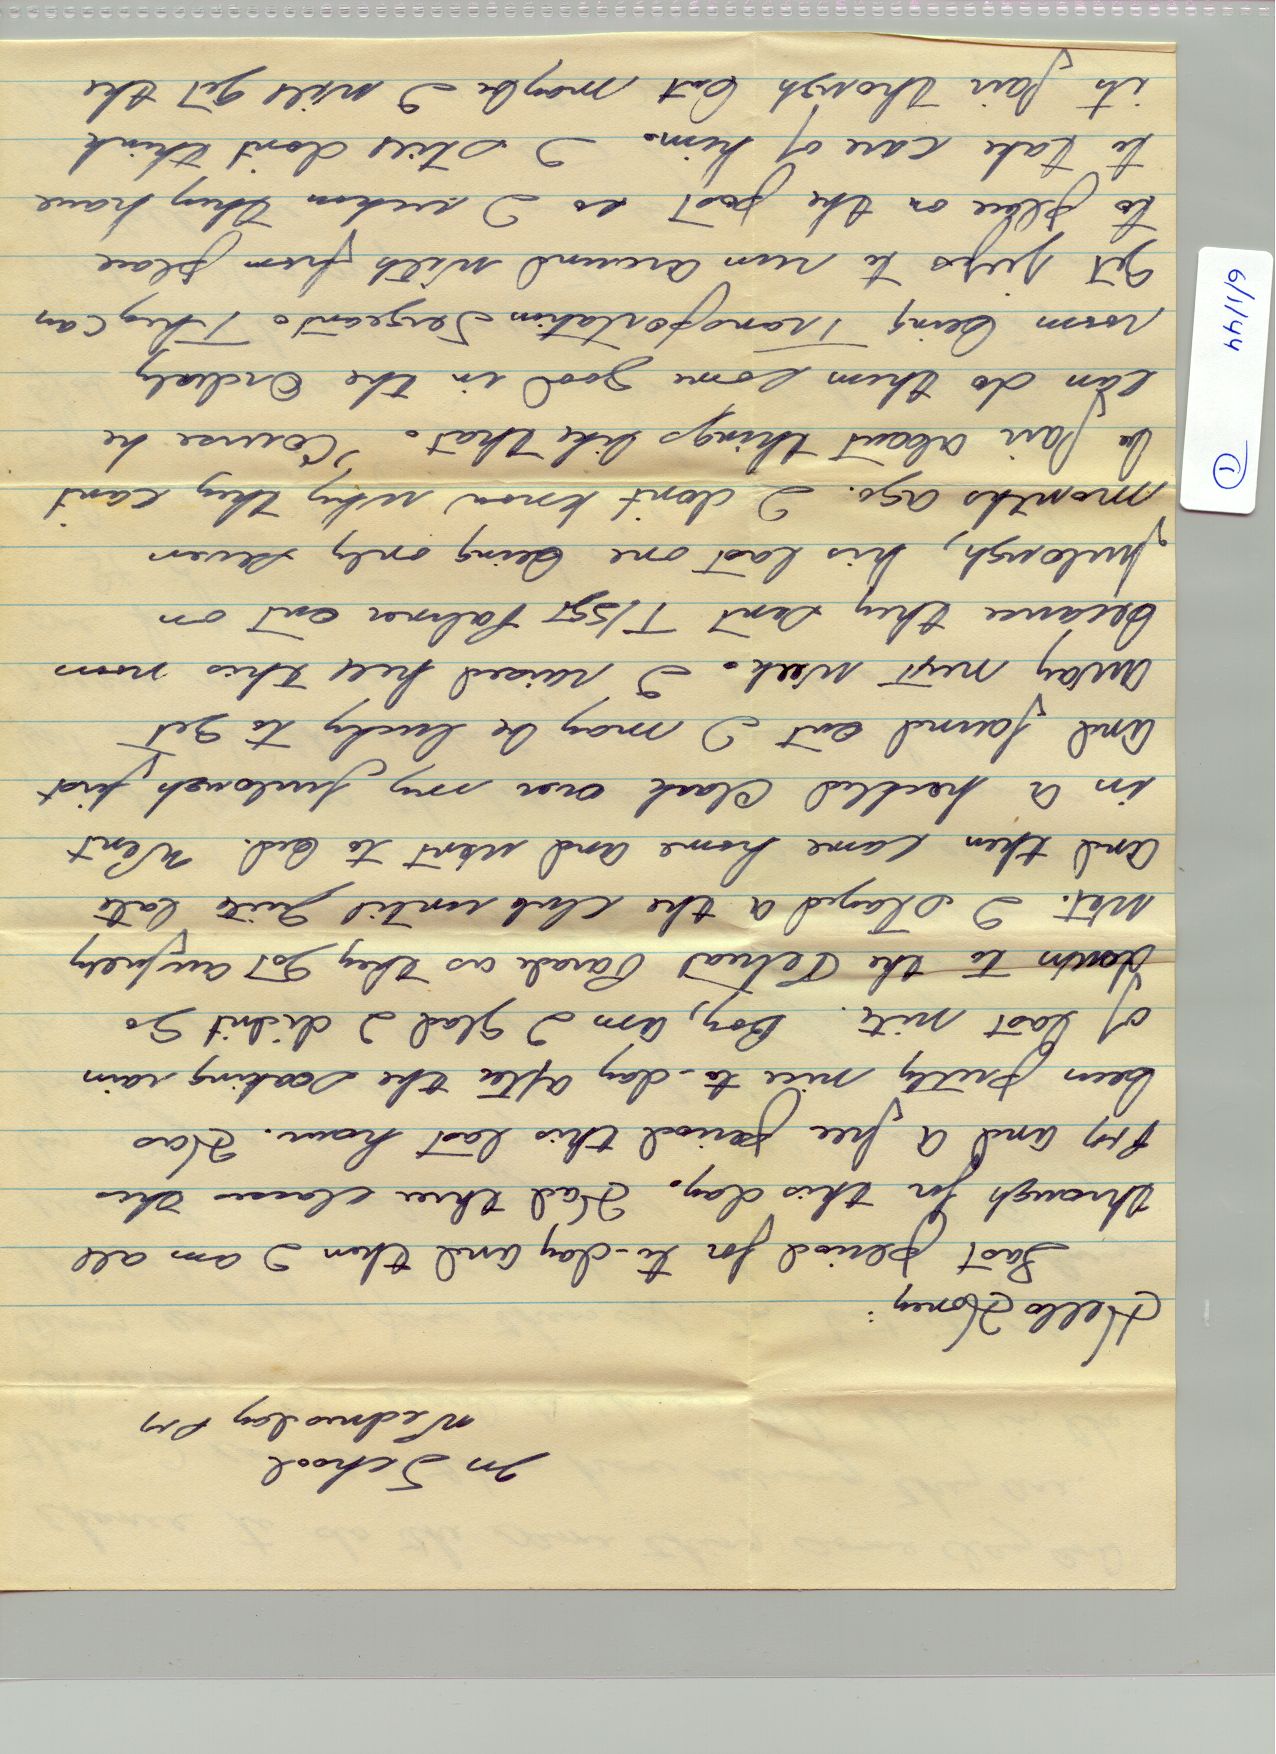 In School
Wednesday PM
Hello Honey:
Last period for to-day and then I am all
through for this day. Had three classes this
PM and a free period this last hour. Has
been pretty nice to-day after the soaking rain
of last nite. Boy, am I glad I didn't go
down to the Retreat Parade as they got awfully
wet. I stayed a the club until quite late
and then came home and went to bed. Went
in a heated clash over my furlough first
and found out I may be lucky to get
away next week. I raised hell this noon
because they sent T/Sgt Palmer out on
furlough, his last one being only seven
months ago. I don't know why they cant
be fair about things like that. Course he
can do them some good in the Orderly
room being Transportation Sergeant. They can
get jeeps to run around with from place
to place on the post so I reckon they have
to take care of him. I still dont think
its fair though but maybe I will get the
6/1/44
1